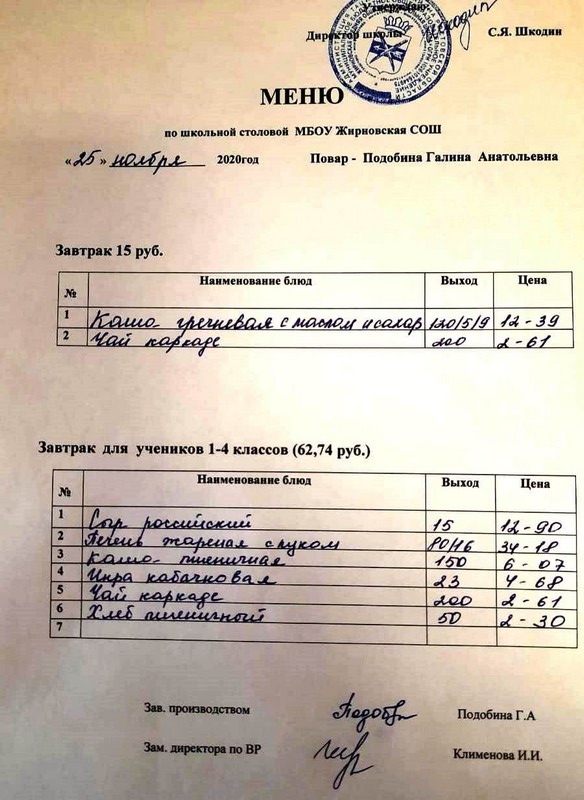 Утверждаю
Директор школы С.Я. Шкодин
МЕНЮ
по школьной столовой МБОУ Жирновская СОШ
«25» ноября 2020год Повар - Подобина Галина Анатольевна
Завтрак 15 руб.
№ Наименование блюд Выход Цена
1 Каша гречневая с маслом и сахар 120/5/9 12-39
2 Чай каркаде 200 2-61
Завтрак для учеников 1-4 классов (62,74 руб.)
№ Наименование блюд Выход Цена
1 Сыр российский 15 12-90
2 Печень жареная с луком 80/16 34-18
3 Каша пшеничная 150 6-07
4 Икра кабачковая 23 4-68
5 Чай каркаде 200 2-61
6 Хлеб пшеничный 50 2-30
7
Зав. производством Подобина Г.А
Зам. директора по ВР Клименова И.И.